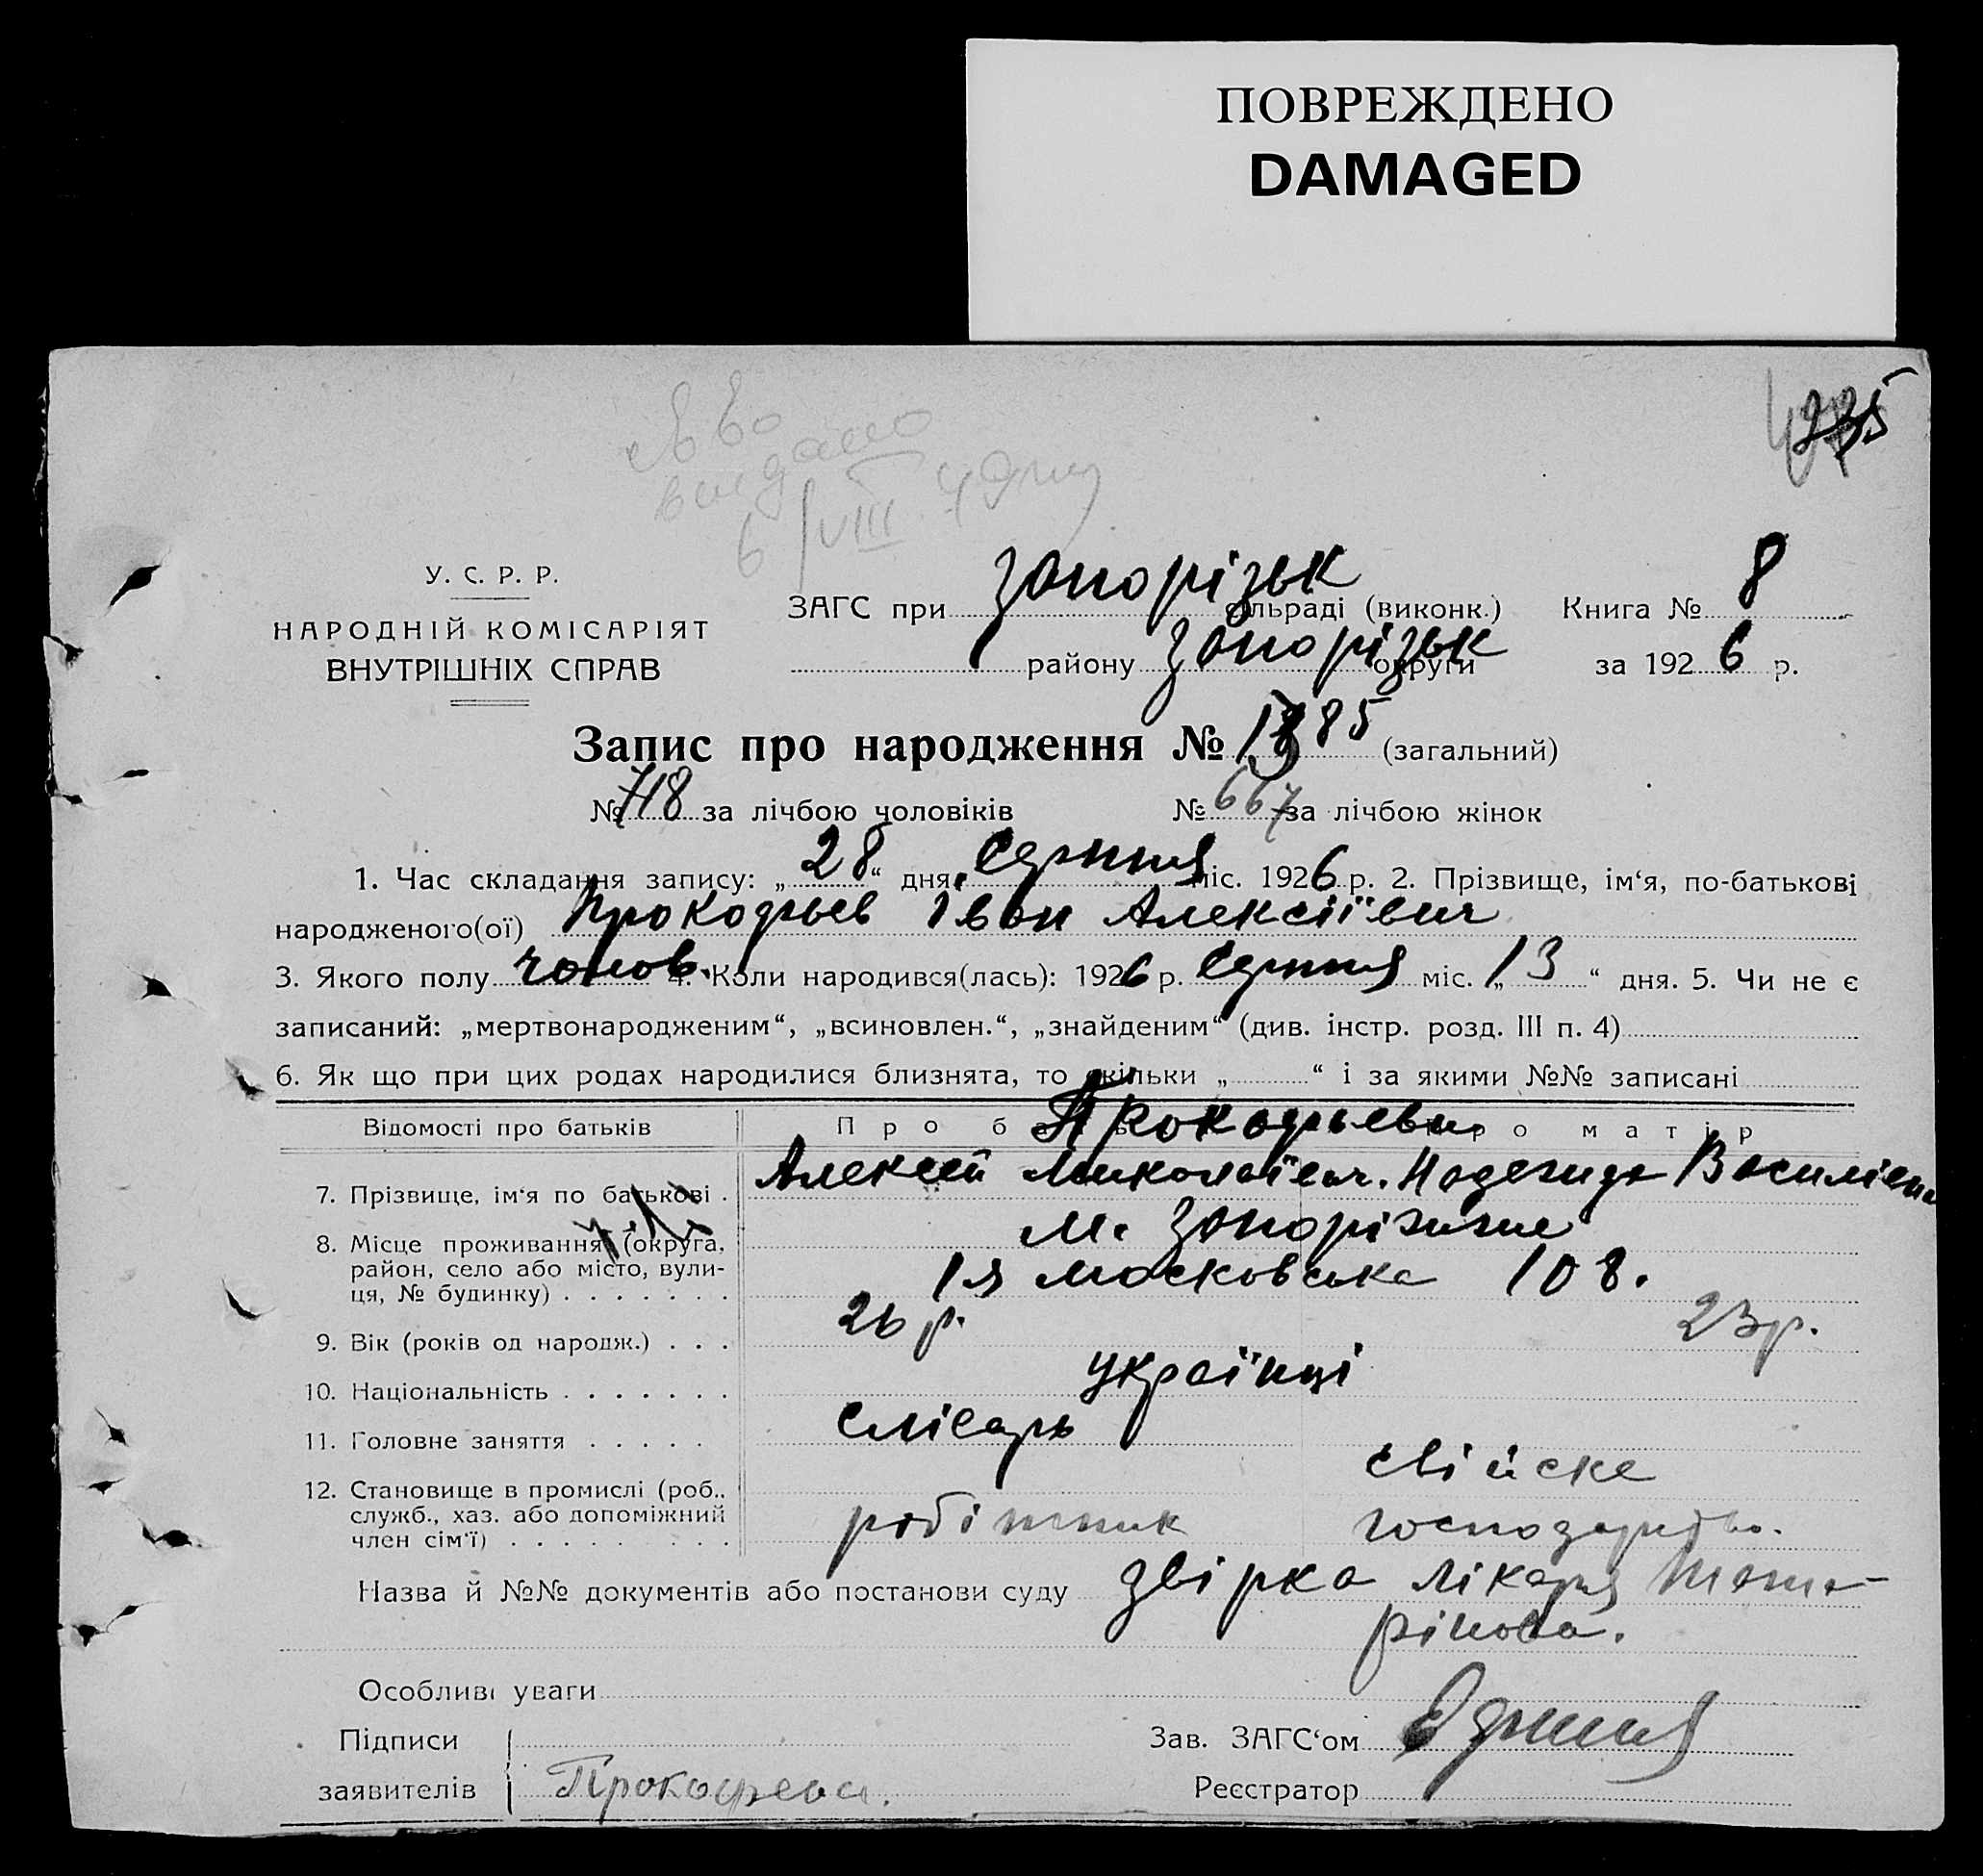 ПОВРЕЖДЕНО
DAMAGED
235
видано
6/VIII 49
У. С. Р. Р.
НАРОДНІЙ КОМІСАРІЯТ
ВНУТРІШНІХ СПРАВ
ЗАГС при Запорізьк сільраді (виконк.) Книга № 8
району Запорізьк округи за 1926 р.
Запис про народження № 1385 (загальний)
№ 718 за лічбою чоловіків № 667 за лічбою жінок
1. Час складання запису: „28“ дня Серпня міс. 1926 р. 2. Прізвище, ім‘я, по-батькові
народженого(ої) Прокофьев Іван Алексіївич
3. Якого полу чолов. 4. Коли народився(лась): 1926 р. Серпня міс. „13“ дня. 5. Чи не є
записаний: „мертвонародженим“, „всиновлен.“, „знайденим“ (див. інстр. розд. III п. 4)
6. Як що при цих родах народилися близнята, то скільки „ “ і за якими №№ записані
Відомості про батьків Про батька Про матір
Прокофьеви
7. Прізвище, ім‘я по батькові . Алексей Миколаївич. Надежида Василівна
8. Місце проживання (округа, м. Запоріжжє
район, село або місто, вули- 1я Московська 108.
ця, № будинку) . . . . . . .
9. Вік (років од народж.) . . . 26 р. 23 р.
10. Національність . . . . . . . українці
11. Головне заняття . . . . . слісарь
12. Становище в промислі (роб., свійске
служб., хаз. або допоміжний робітник господарство.
член сім‘ї) . . . . . . . . .
Назва й №№ документів або постанови суду звірка лікаря
Особливі уваги
Підписи Зав. ЗАГС‘ом
заявителів Прокофева. Реєстратор